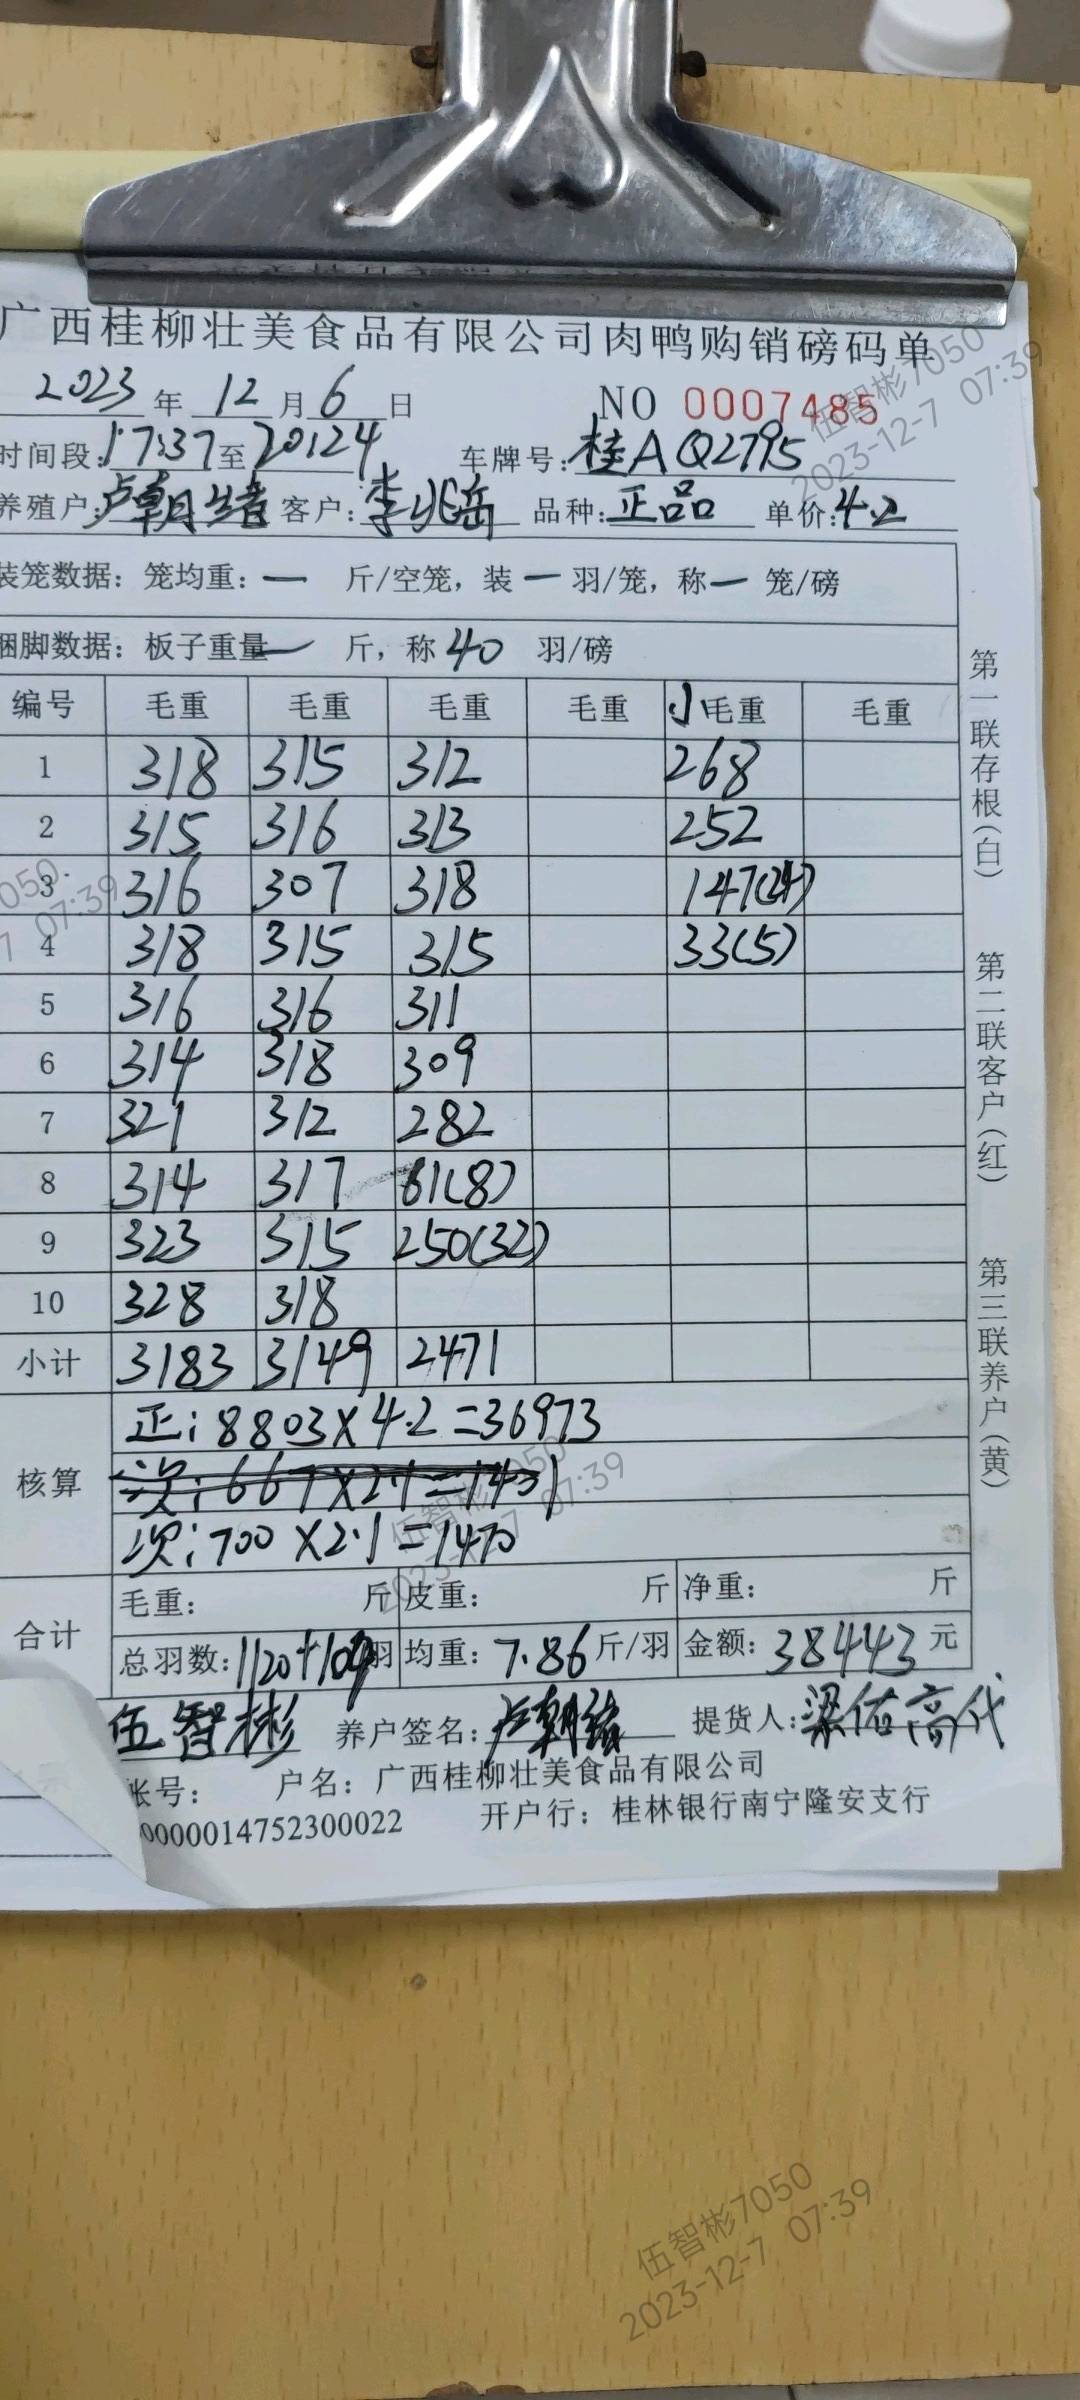 广西桂柳壮美食品有限公司肉鸭购销磅码单
2023年 12月6日 NO 0007485
时间段:17:37至20:24 车牌号:桂A Q2795
养殖户:卢朝绪 客户:李兆岳 品种:正品 单价:4.2
装笼数据: 笼均重:一 斤/空笼, 装一羽/笼, 称一 笼/磅
捆脚数据: 板子重量一 斤, 称 40 羽/磅
编号 毛重 毛重 毛重 毛重 小毛重 毛重
1 318 315 312 268
2 315 316 313 252
3 316 307 318 147(24)
4 318 315 315 33(5)
5 316 316 311
6 314 318 309
7 321 312 282
8 314 317 61(8)
9 323 315 250(32)
10 328 318
小计 3183 3149 2471
正: 8803×4.2=36973
核算 次: 667×2.1=1431
次: 700×2.1=1470
毛重: 斤 皮重: 斤 净重: 斤
合计
总羽数:1120+109羽 均重:7.86斤/羽 金额:38443元
伍智彬 养户签名:卢朝绪 提货人:梁佑高代
帐号: 户名: 广西桂柳壮美食品有限公司
0000014752300022 开户行: 桂林银行南宁隆安支行
第一联存根(白) 第二联客户(红) 第三联养户(黄)
伍智彬7050
2023-12-7 07:39
7050
7 07:39
伍智彬7050
2023-12-7 07:39
伍智彬7050
2023-12-7 07:39